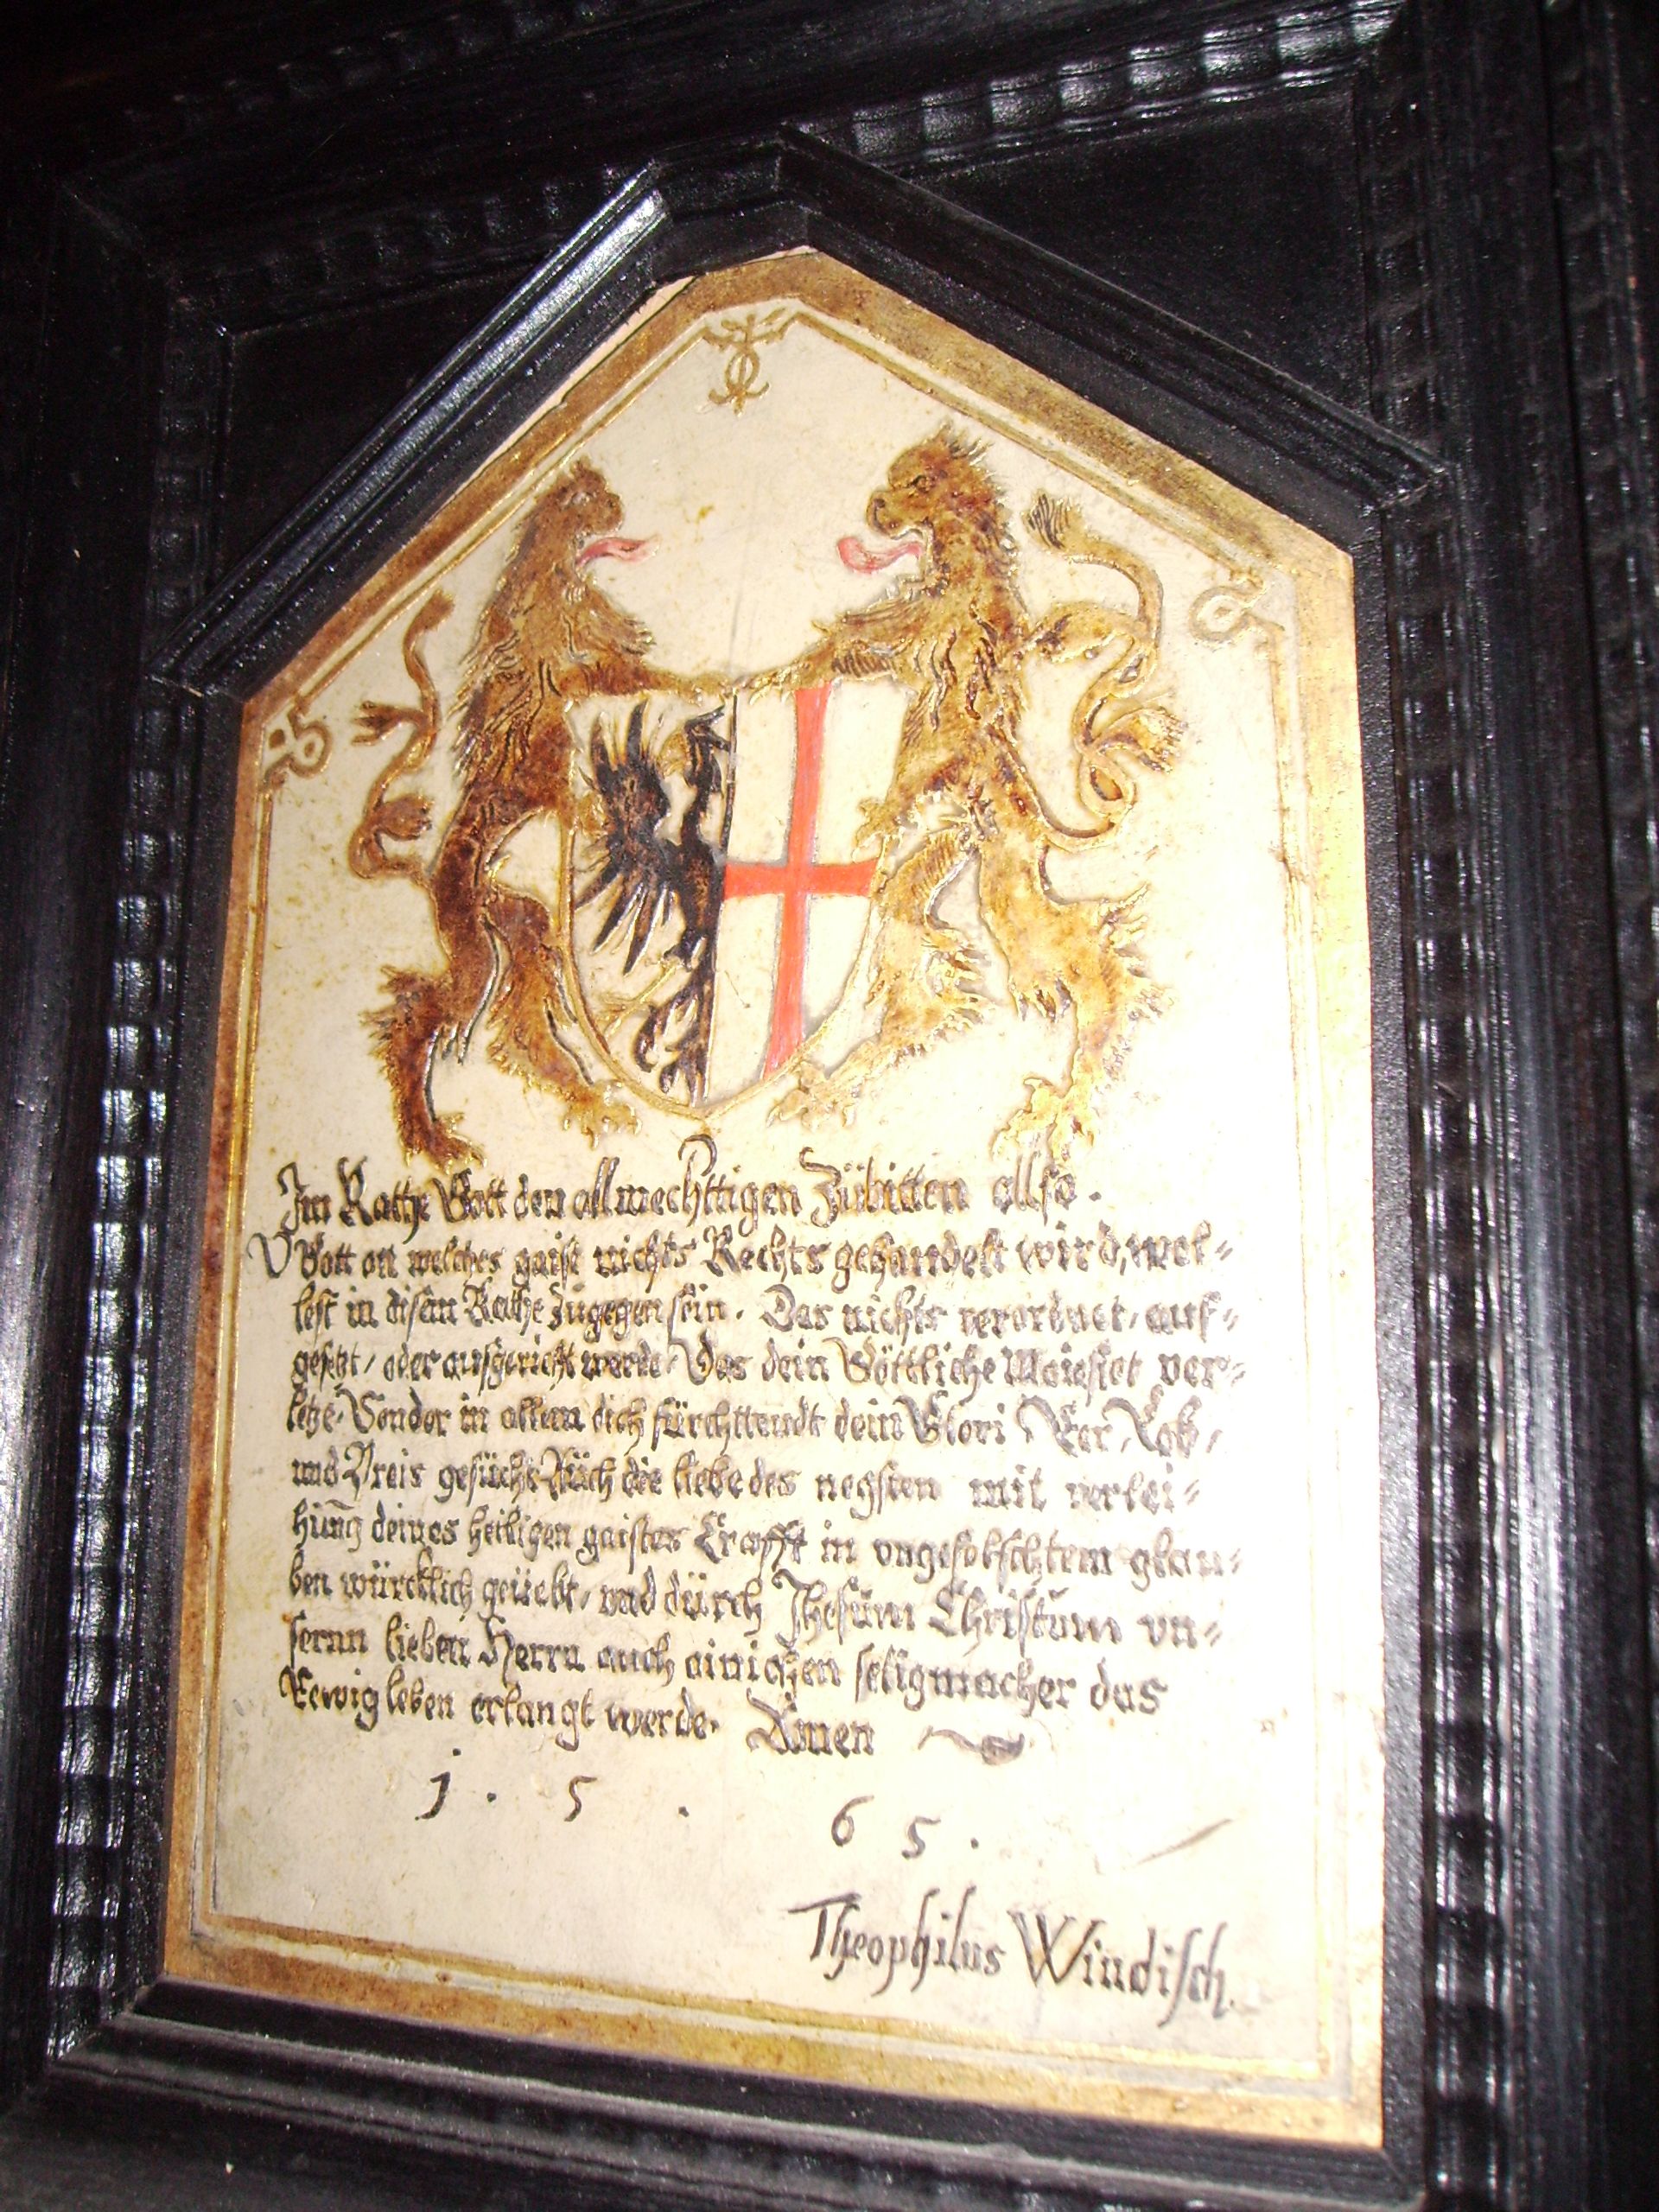 Im Rathe Gott den allmechttigen Zübitten allso.
O Gott on welches gaist nichts Rechts gehandelt wird, wel-
lest in disem Rathe zugegen sein. Das nichts verordnet, auf-
gesetzt, oder ausgericht werde, Das dein Göttliche Maiestet ver-
letze, Sonder in allem dich fürchttendt dein Glori Eer, Lob,
und Preis gesücht Aüch die liebe des negsten mit verlei-
hüng deines heiligen gaistes Crafft in ungefolschtem glau-
ben würcklich geüebt, und dürch Jhesüm Christum un-
sernn lieben Herrn auch ainichen seligmacher das
Eewig leben erlangt werde. Amen
1 . 5 . 6 5 .
Theophilus Windisch.